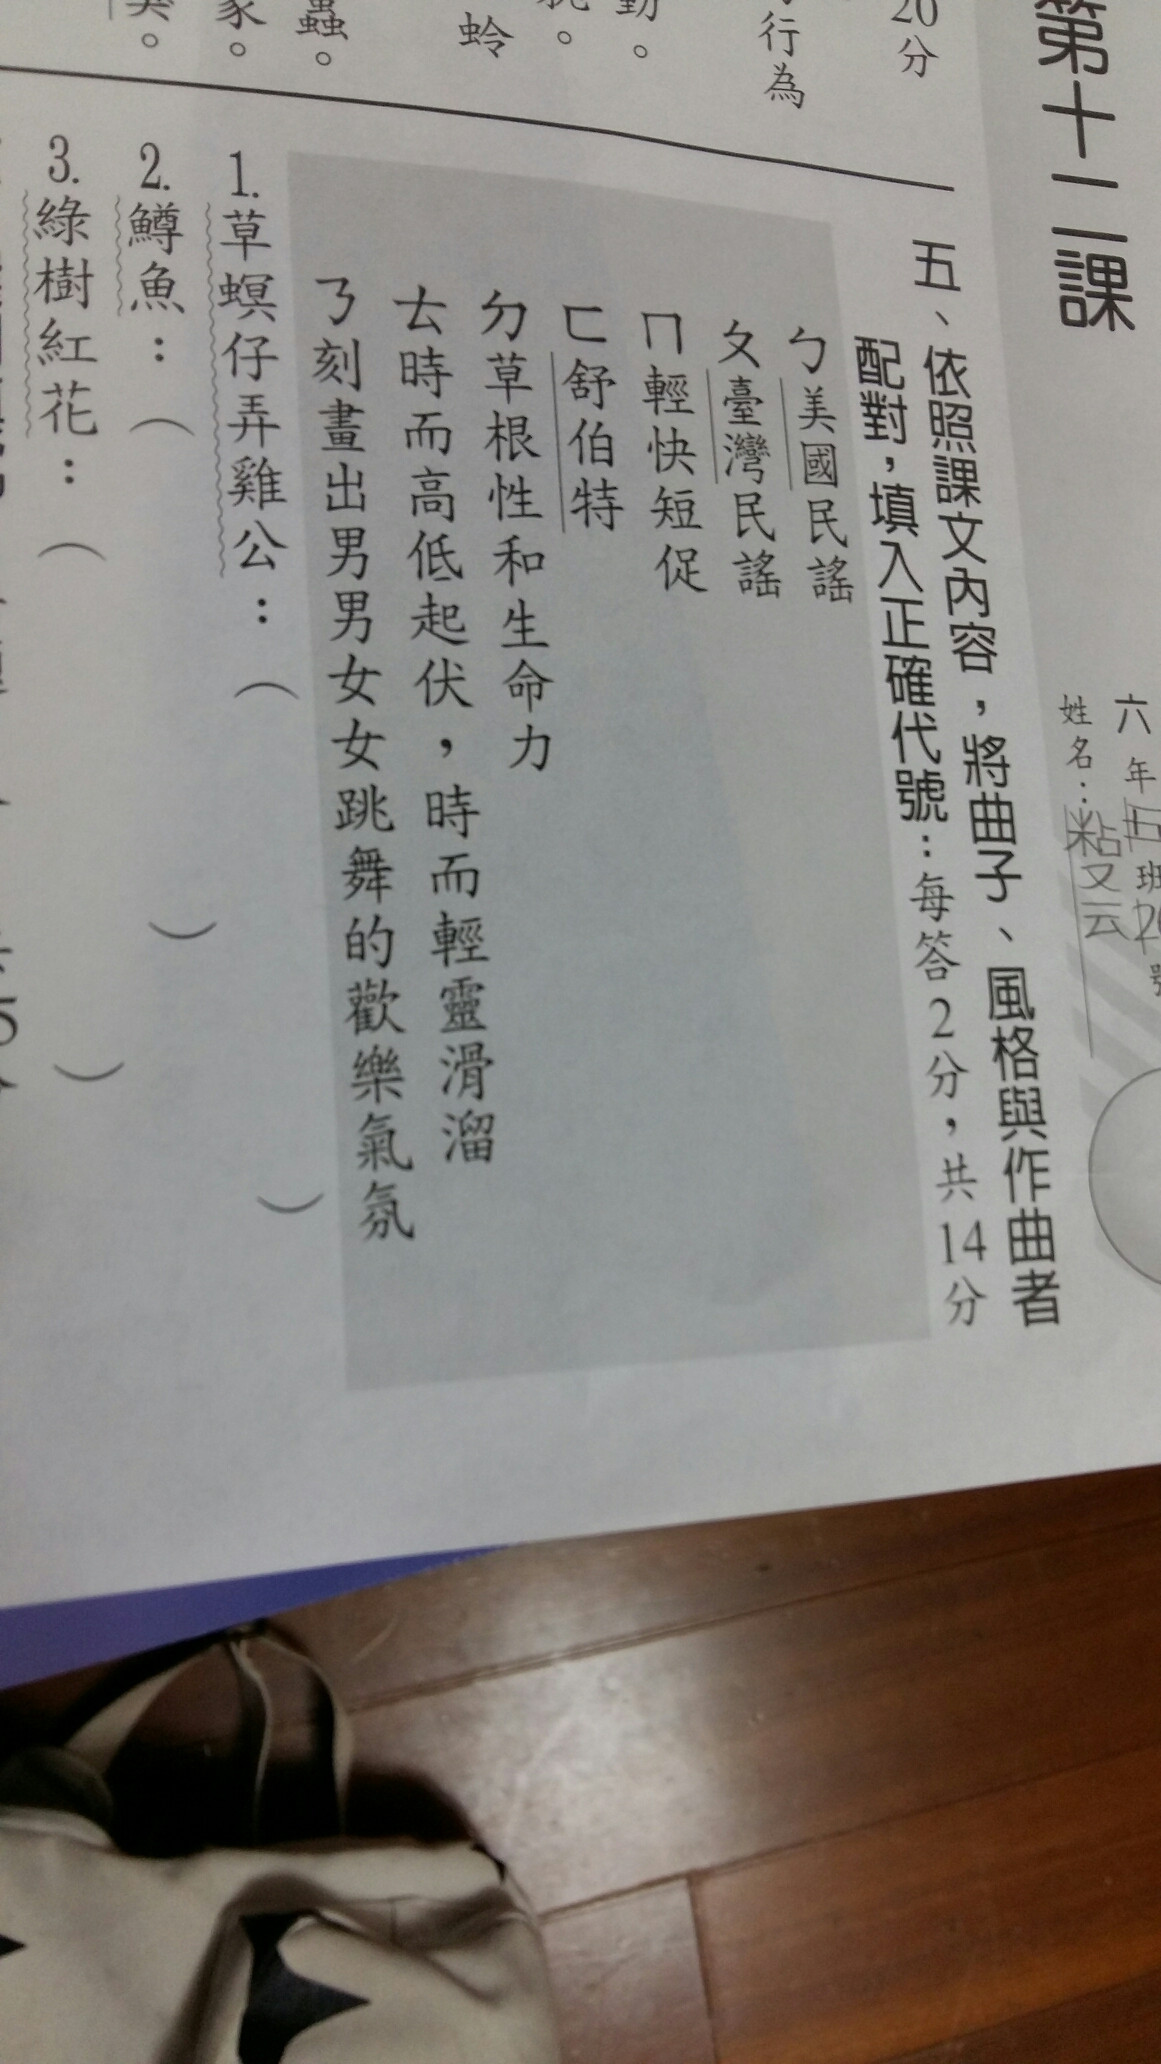 第十二課
六年五班20號
姓名：粘又云
20分
行為
勤。
蛉
蟲。
五、依照課文內容，將曲子、風格與作曲者
配對，填入正確代號：每答2分，共14分
ㄅ美國民謠
ㄆ臺灣民謠
ㄇ輕快短促
ㄈ舒伯特
ㄉ草根性和生命力
ㄊ時而高低起伏，時而輕靈滑溜
ㄋ刻畫出男男女女跳舞的歡樂氣氛
1.草螟仔弄雞公：（ ）
2.鱒魚：（ ）
3.綠樹紅花：（ ）